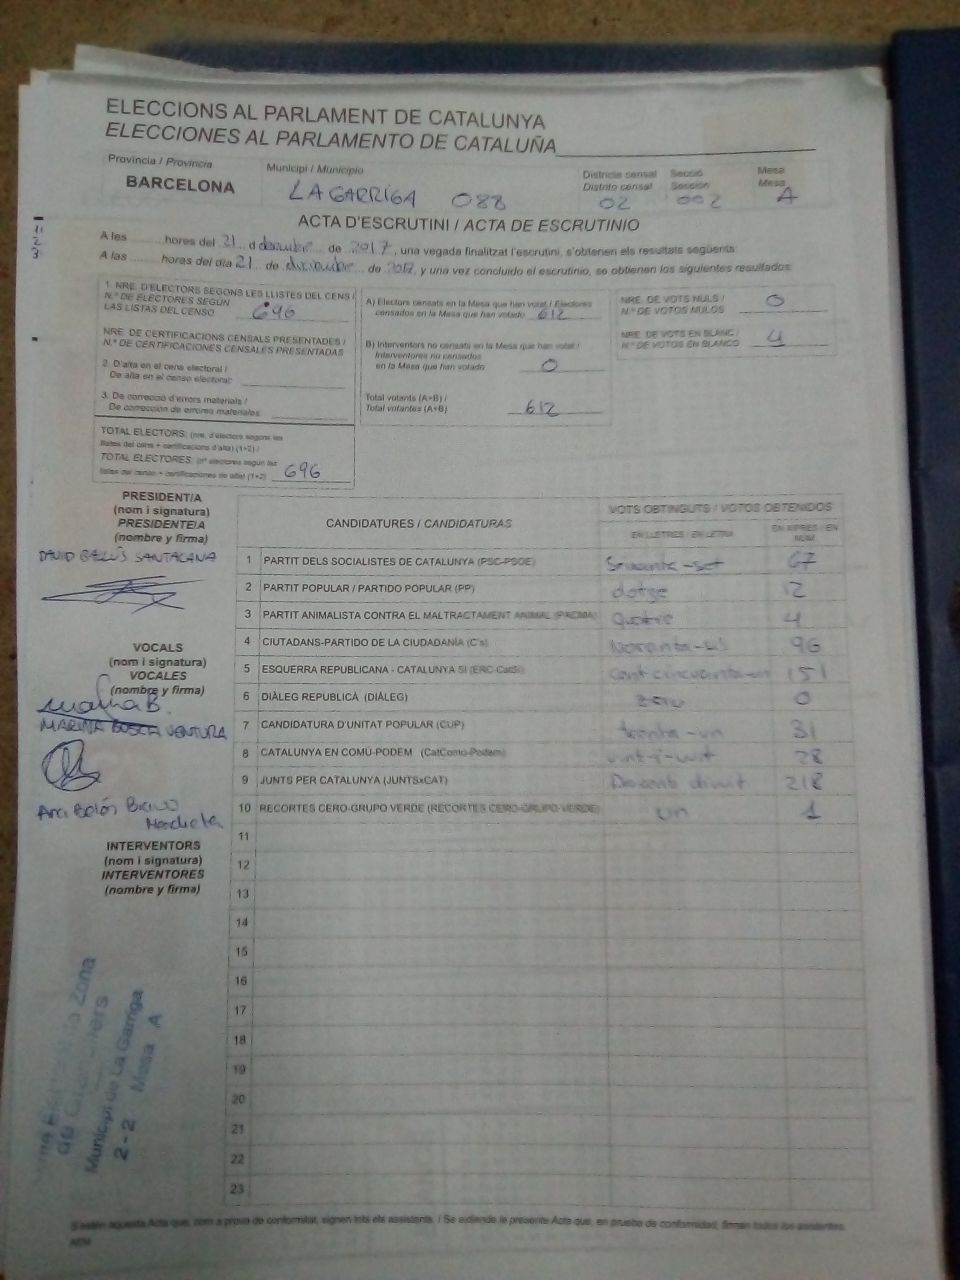 ELECCIONS AL PARLAMENT DE CATALUNYA
ELECCIONES AL PARLAMENTO DE CATALUÑA
Provincia / Provincia
BARCELONA
Municipi / Municipio
LA GARRIGA 088
Districte censal
Distrito censal
02
Secció
Sección
002
Mesa
Mesa
A
ACTA D'ESCRUTINI / ACTA DE ESCRUTINIO
A les ......... hores del 21 d desembre de 2017, una vegada finalitzat l'escrutini, s'obtenen els resultats següents:
A las ......... horas del día 21 de diciembre de 2017, y una vez concluido el escrutinio, se obtienen los siguientes resultados:
1. NRE. D'ELECTORS SEGONS LES LLISTES DEL CENS /
N.º DE ELECTORES SEGÚN
LAS LISTAS DEL CENSO 696
NRE. DE CERTIFICACIONS CENSALS PRESENTADES /
N.º DE CERTIFICACIONES CENSALES PRESENTADAS
2. D'alta en el cens electoral /
De alta en el censo electoral:
3. De correcció d'errors materials /
De corrección de errores materiales
TOTAL ELECTORS: (nre. d'electors segons les
llistes del cens + certificacions d'alta) (1+2) /
TOTAL ELECTORES: (nº electores según las
listas del censo + certificaciones de alta) (1+2) 696
A) Electors censats en la Mesa que han votat / Electores
censados en la Mesa que han votado 612
B) Interventors no censats en la Mesa que han votat /
Interventores no censados
en la Mesa que han votado 0
Total votants (A+B) /
Total votantes (A+B) 612
NRE. DE VOTS NULS /
N.º DE VOTOS NULOS 0
NRE. DE VOTS EN BLANC /
N.º DE VOTOS EN BLANCO 4
PRESIDENT/A
(nom i signatura)
PRESIDENTE/A
(nombre y firma)
DAVID GALLÚS SANTACANA
VOCALS
(nom i signatura)
VOCALES
(nombre y firma)
Marina B.
MARINA BOSCA VENTURA
Ana Belén Bravo
INTERVENTORS
(nom i signatura)
INTERVENTORES
(nombre y firma)
CANDIDATURES / CANDIDATURAS
VOTS OBTINGUTS / VOTOS OBTENIDOS
EN LLETRES / EN LETRA
EN XIFRES / EN NÚM.
1 PARTIT DELS SOCIALISTES DE CATALUNYA (PSC-PSOE) Seixanta-set 67
2 PARTIT POPULAR / PARTIDO POPULAR (PP) dotze 12
3 PARTIT ANIMALISTA CONTRA EL MALTRACTAMENT ANIMAL (PACMA) Quatre 4
4 CIUTADANS-PARTIDO DE LA CIUDADANÍA (C's) Noranta-sis 96
5 ESQUERRA REPUBLICANA - CATALUNYA SÍ (ERC-CatSí) Cent cincuanta-un 151
6 DIÀLEG REPUBLICÀ (DIÀLEG) zero 0
7 CANDIDATURA D'UNITAT POPULAR (CUP) trenta-un 31
8 CATALUNYA EN COMÚ-PODEM (CatComú-Podem) vint-i-vuit 28
9 JUNTS PER CATALUNYA (JUNTSxCAT) Doscents divuit 218
10 RECORTES CERO-GRUPO VERDE (RECORTES CERO-GRUPO VERDE) un 1
11
12
13
14
15
16
17
18
19
20
21
22
23
Zona
Municipi de La Garriga
2 - 2 Mesa A
S'estén aquesta Acta que, com a prova de conformitat, signen tots els assistents. / Se extiende la presente Acta que, en prueba de conformidad, firman todos los asistentes.